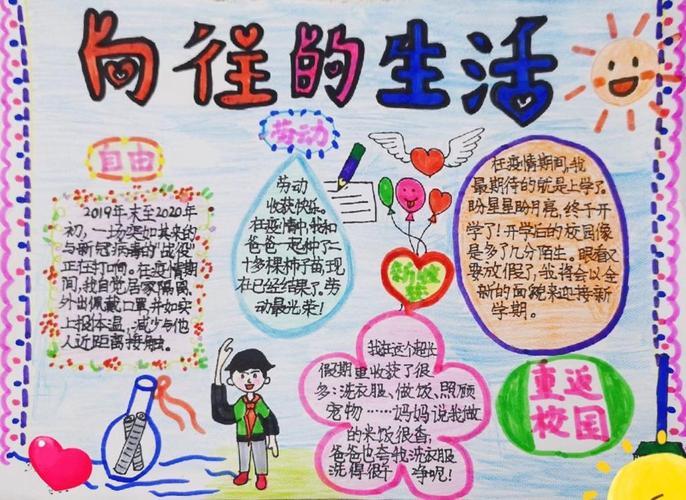 向往的生活
自由
2019年末至2020年
初,一场突如其来的
与新冠病毒的“战役”
正在打响。在疫情期
间,我自觉居家隔离,
外出佩戴口罩,并如实
上报体温,减少与他
人近距离接触。
劳动
劳动
收获快乐。
在疫情中,我和
爸爸一起种了二
十多棵柿子苗,现
在已经结果了,劳
动最光荣!
新收获
我在这个超长
假期里收获了很
多:洗衣服、做饭、照顾
宠物……妈妈说我做
的米饭很香,
爸爸也夸我洗衣服
洗得很干净呢!
在疫情期间,我
最期待的就是上学了。
盼星星盼月亮,终于开
学了!开学后的校园像
是多了几分陌生。眼看又
要放假了,我将会以全
新的面貌来迎接新
学期。
重返
校园